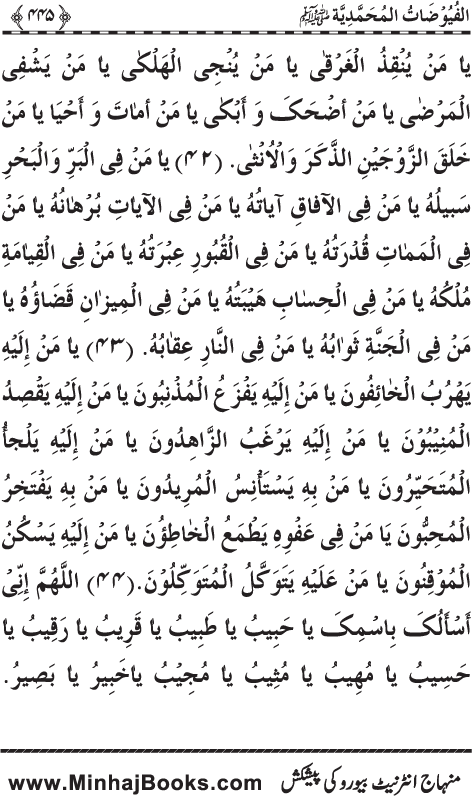 الفُيُوْضَاتُ المُحَمَّدِيَّة ﷺ ﴿۴۴۵﴾
يا مَنْ يُنْقِذُ الْغَرْقىٰ يا مَنْ يُنْجِى الْهَلْكىٰ يا مَنْ يَشْفِى
الْمَرْضىٰ يا مَنْ أضْحَكَ وَ أَبْكىٰ يا مَنْ أماتَ وَ أَحْيَا يا مَنْ
خَلَقَ الزَّوْجَيْنِ الذَّكَرَ وَالْاُنْثىٰ. (۴۲) يا مَنْ فِى الْبَرِّ وَالْبَحْرِ
سَبِيلُهُ يا مَنْ فِى الآفاقِ آياتُهُ يا مَنْ فِى الآياتِ بُرْهانُهُ يا مَنْ
فِى الْمَماتِ قُدْرَتُهُ يا مَنْ فِى الْقُبُورِ عِبْرَتُهُ يا مَنْ فِى الْقِيامَةِ
مُلْكُهُ يا مَنْ فِى الْحِسابِ هَيْبَتُهُ يا مَنْ فِى الْمِيزانِ قَضاؤُهُ يا
مَنْ فِى الْجَنَّةِ ثَوابُهُ يا مَنْ فِى النَّارِ عِقابُهُ. (۴۳) يا مَنْ إِلَيْهِ
يَهْرُبُ الْخائِفُونَ يا مَنْ إِلَيْهِ يَفْزَعُ الْمُذْنِبُونَ يا مَنْ إِلَيْهِ يَقْصِدُ
الْمُنِيْبُوْنَ يا مَنْ إِلَيْهِ يَرْغَبُ الزَّاهِدُونَ يا مَنْ إِلَيْهِ يَلْجأُ
الْمُتَحَيِّرُونَ يا مَنْ بِهِ يَسْتَأْنِسُ الْمُرِيدُونَ يا مَنْ بِهِ يَفْتَخِرُ
الْمُحِبُّونَ يَا مَنْ فِى عَفْوِهِ يَطْمَعُ الْخاطِؤُنَ يا مَنْ إِلَيْهِ يَسْكُنُ
الْمُوْقِنُونَ يا مَنْ عَلَيْهِ يَتَوَكَّلُ الْمُتَوَكِّلُوْنَ. (۴۴) اللَّهُمَّ إِنِّىْ
أَسْأَلُكَ بِاسْمِكَ يا حَبِيبُ يا طَبِيبُ يا قَرِيبُ يا رَقِيبُ يا
حَسِيبُ يا مُهِيبُ يا مُثِيبُ يا مُجِيْبُ ياخَبِيرُ يا بَصِيرُ.
منہاج انٹرنیٹ بیورو کی پیشکش www.MinhajBooks.com